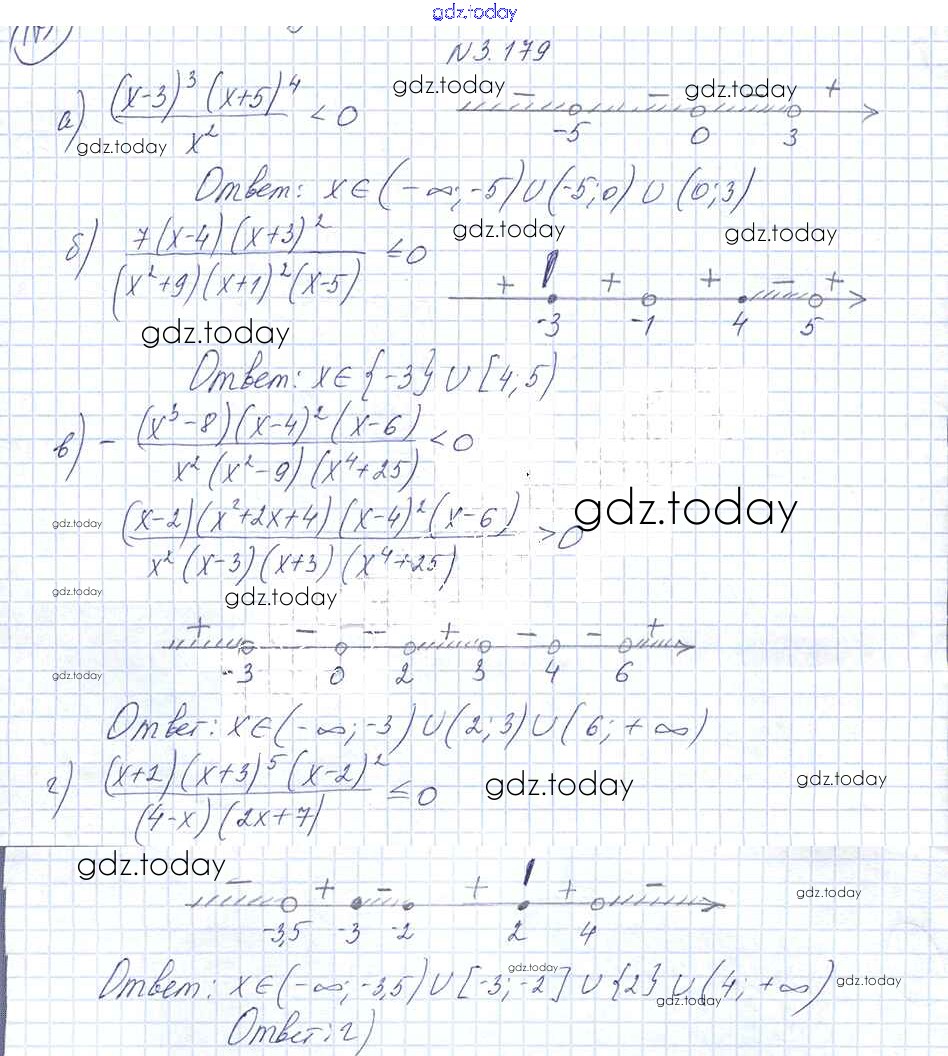 gdz.today
N 3.179
а) (x-3)^3 (x+5)^4 / x^2 < 0
gdz.today gdz.today
- - - +
-5 0 3
gdz.today
Ответ: x∈(-∞; -5)∪(-5; 0)∪(0; 3)
б) 7(x-4)(x+3)^2 / (x^2+9)(x+1)^2(x-5) ≤ 0
gdz.today gdz.today
+ ! + + - +
-3 -1 4 5
gdz.today
Ответ: x∈{-3}∪[4; 5)
в) - (x^3-8)(x-4)^2(x-6) / x^2(x^2-9)(x^4+25) < 0
gdz.today
(x-2)(x^2+2x+4)(x-4)^2(x-6) / x^2(x-3)(x+3)(x^4+25) > 0
gdz.today
gdz.today gdz.today
+ - - + - - +
-3 0 2 3 4 6
gdz.today
Ответ: x∈(-∞; -3)∪(2; 3)∪(6; +∞)
г) (x+2)(x+3)^5(x-2)^2 / (4-x)(2x+7) ≤ 0
gdz.today gdz.today
gdz.today
- + - + ! + -
gdz.today
-3,5 -3 -2 2 4
gdz.today
Ответ: x∈(-∞; -3,5)∪[-3; -2]∪{2}∪(4; +∞)
gdz.today
gdz.today
Ответ: г)